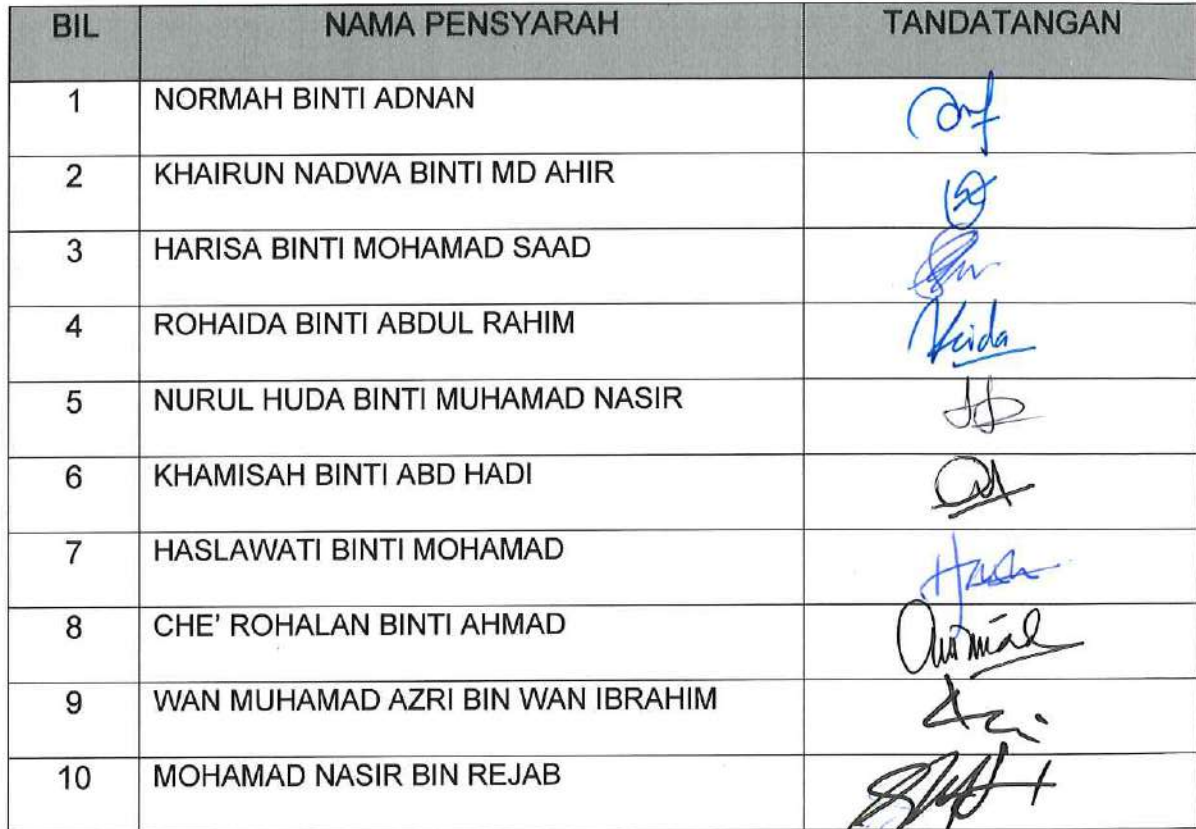 BIL NAMA PENSYARAH TANDATANGAN
1 NORMAH BINTI ADNAN
2 KHAIRUN NADWA BINTI MD AHIR
3 HARISA BINTI MOHAMAD SAAD
4 ROHAIDA BINTI ABDUL RAHIM
5 NURUL HUDA BINTI MUHAMAD NASIR
6 KHAMISAH BINTI ABD HADI
7 HASLAWATI BINTI MOHAMAD
8 CHE' ROHALAN BINTI AHMAD
9 WAN MUHAMAD AZRI BIN WAN IBRAHIM
10 MOHAMAD NASIR BIN REJAB